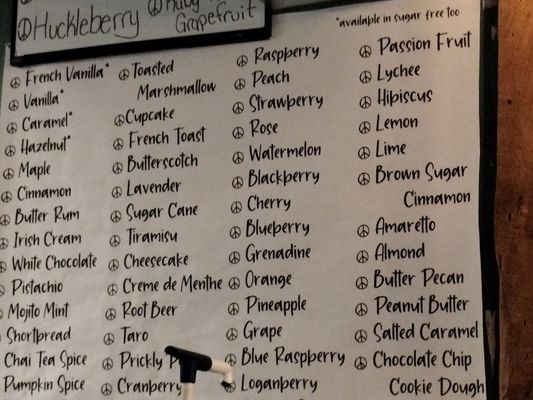 Huckleberry
Ruby
Grapefruit
*available in sugar free too
French Vanilla*
Vanilla*
Caramel*
Hazelnut*
Maple
Cinnamon
Butter Rum
Irish Cream
White Chocolate
Pistachio
Mojito Mint
Shortbread
Chai Tea Spice
Pumpkin Spice
Toasted
Marshmallow
Cupcake
French Toast
Butterscotch
Lavender
Sugar Cane
Tiramisu
Cheesecake
Creme de Menthe
Root Beer
Taro
Prickly
Cranberry
Raspberry
Peach
Strawberry
Rose
Watermelon
Blackberry
Cherry
Blueberry
Grenadine
Orange
Pineapple
Grape
Blue Raspberry
Loganberry
Passion Fruit
Lychee
Hibiscus
Lemon
Lime
Brown Sugar
Cinnamon
Amaretto
Almond
Butter Pecan
Peanut Butter
Salted Caramel
Chocolate Chip
Cookie Dough